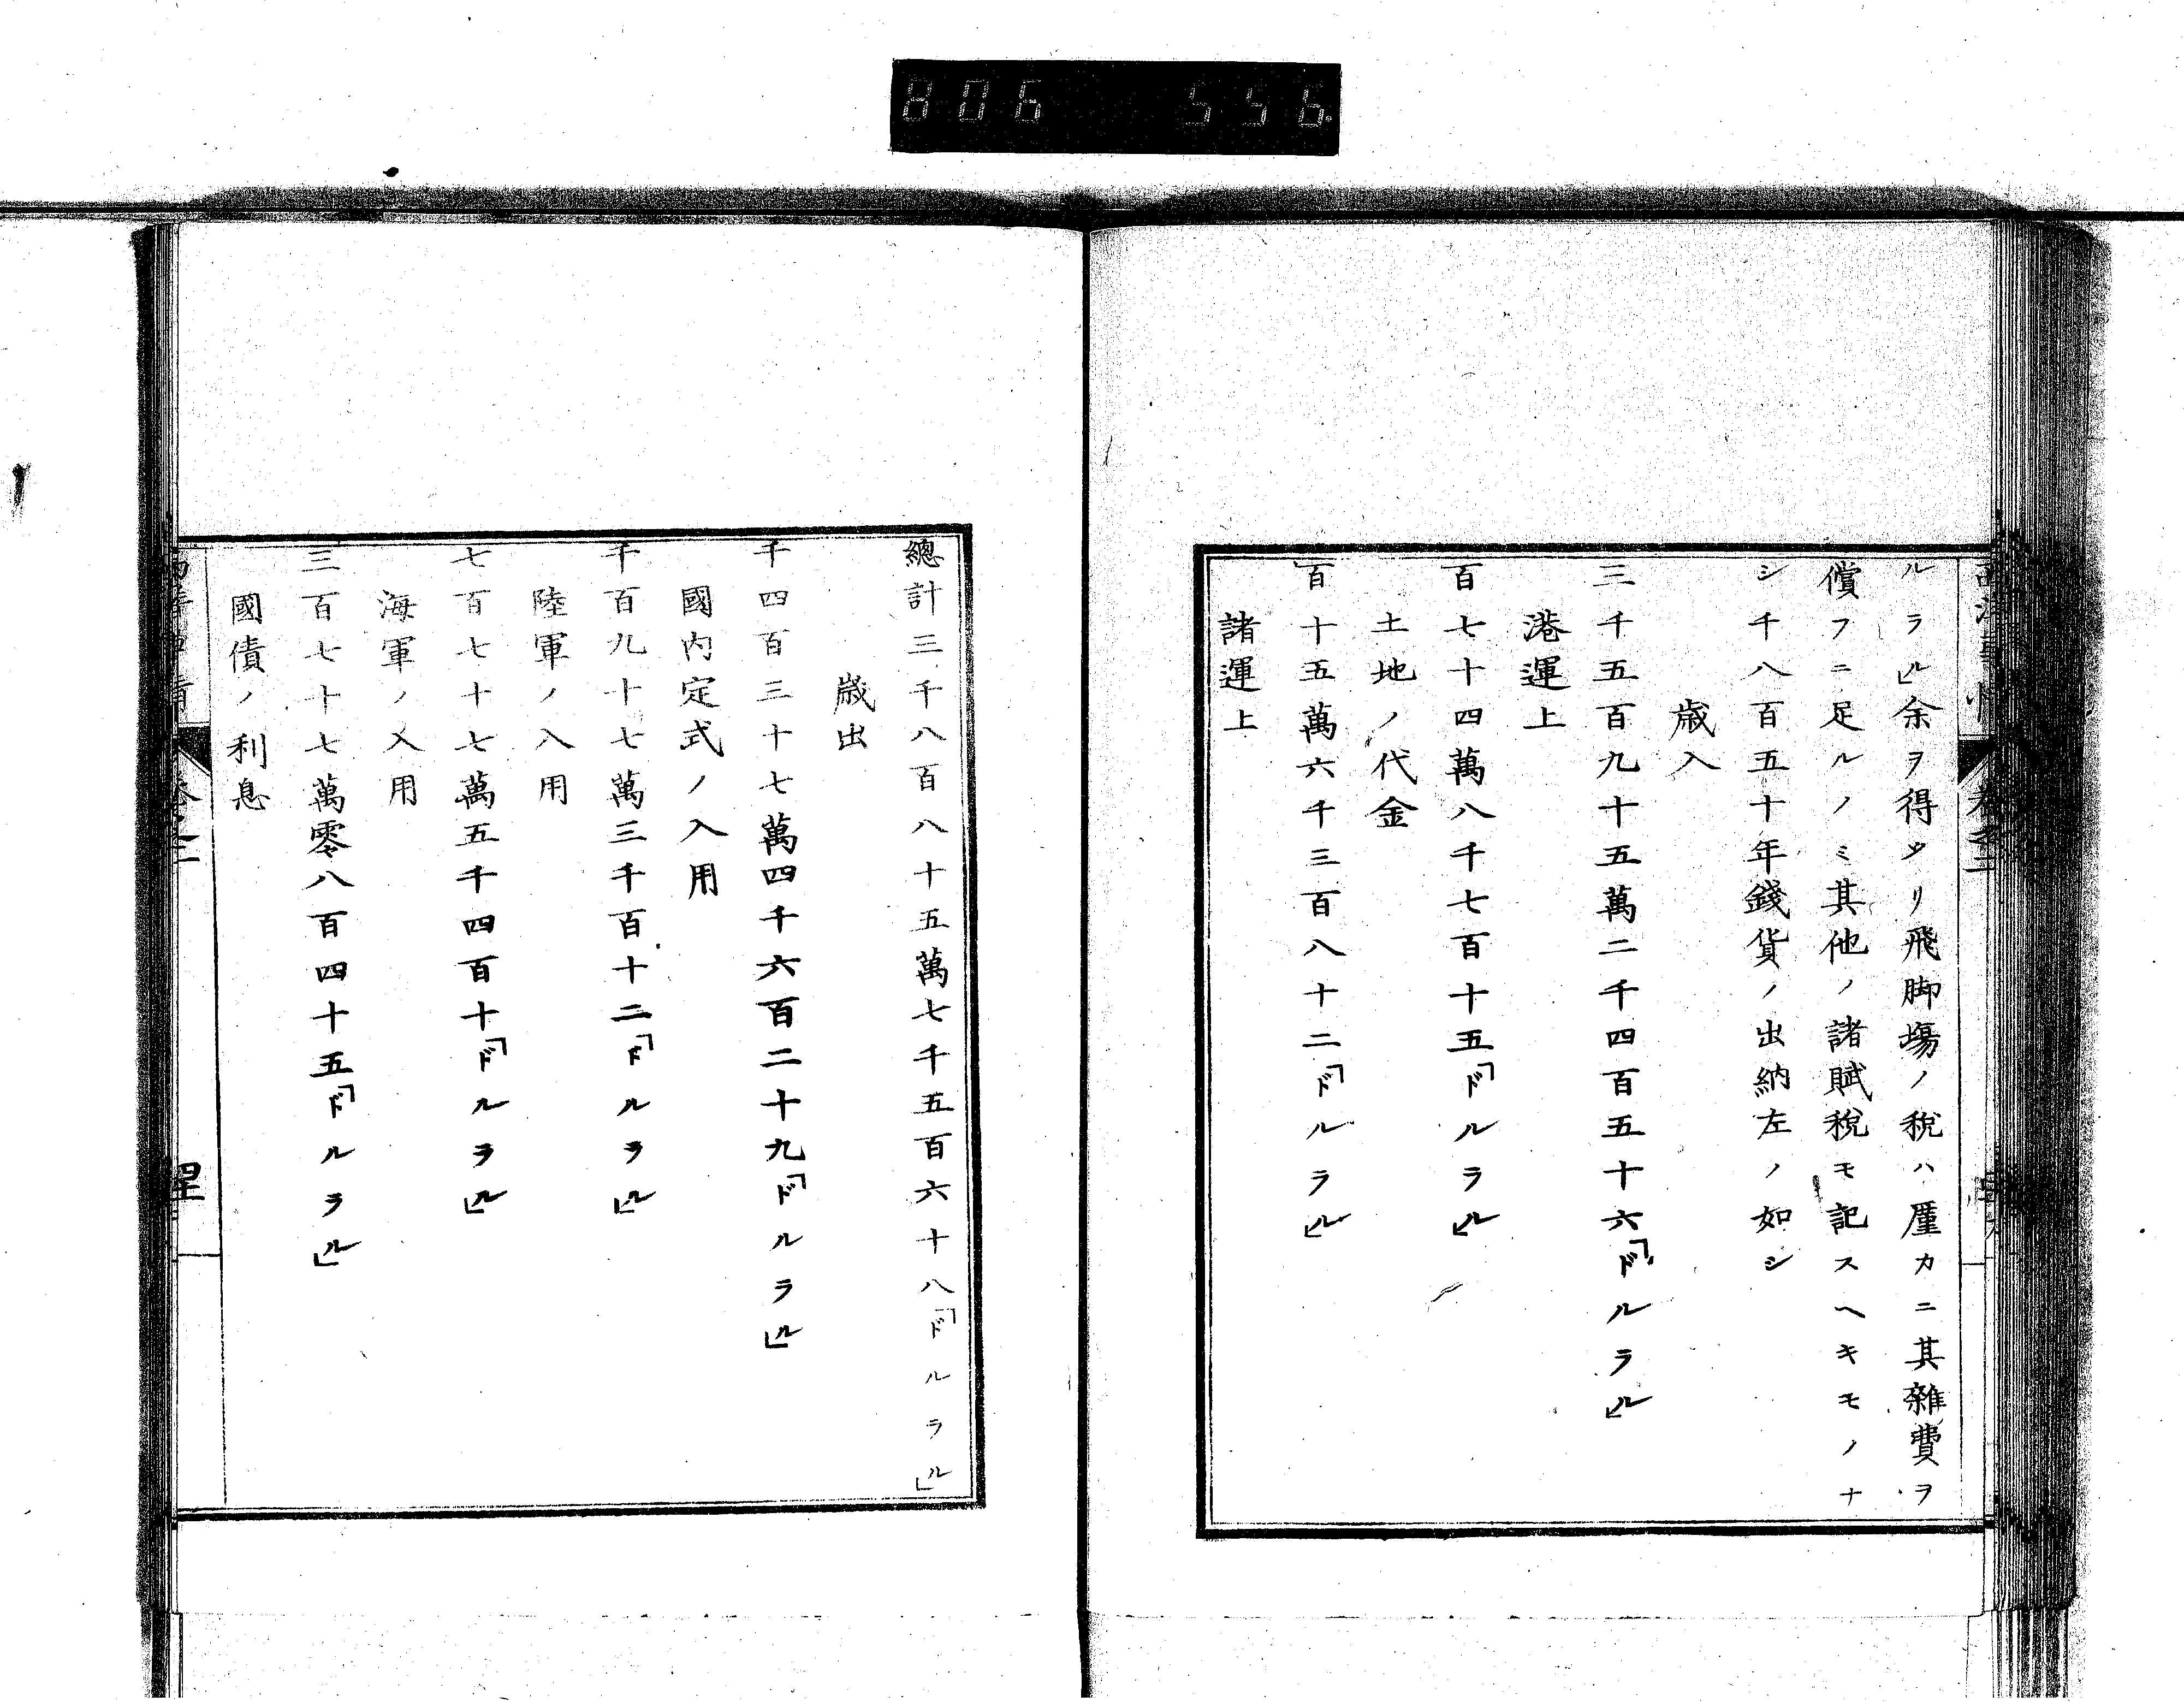 806 556
ルラル」余ヲ得タリ飛脚場ノ税ハ厪カニ其雜費ヲ
償フニ足ルノミ其他ノ諸賦税モ記スヘキモノナ
シ千八百五十年錢貨ノ出納左ノ如シ
歳入
三千五百九十五萬二千四百五十六「ドルラル」
港運上
百七十四萬八千七百十五「ドルラル」
土地ノ代金
百十五萬六千三百八十二「ドルラル」
諸運上
總計三千八百八十五萬七千五百六十八「ドルラル」
歳出
千四百三十七萬四千六百二十九「ドルラル」
國内定式ノ入用
千百九十七萬三千百十二「ドルラル」
陸軍ノ入用
七百七十七萬五千四百十「ドルラル」
海軍ノ入用
三百七十七萬零八百四十五「ドルラル」
國債ノ利息